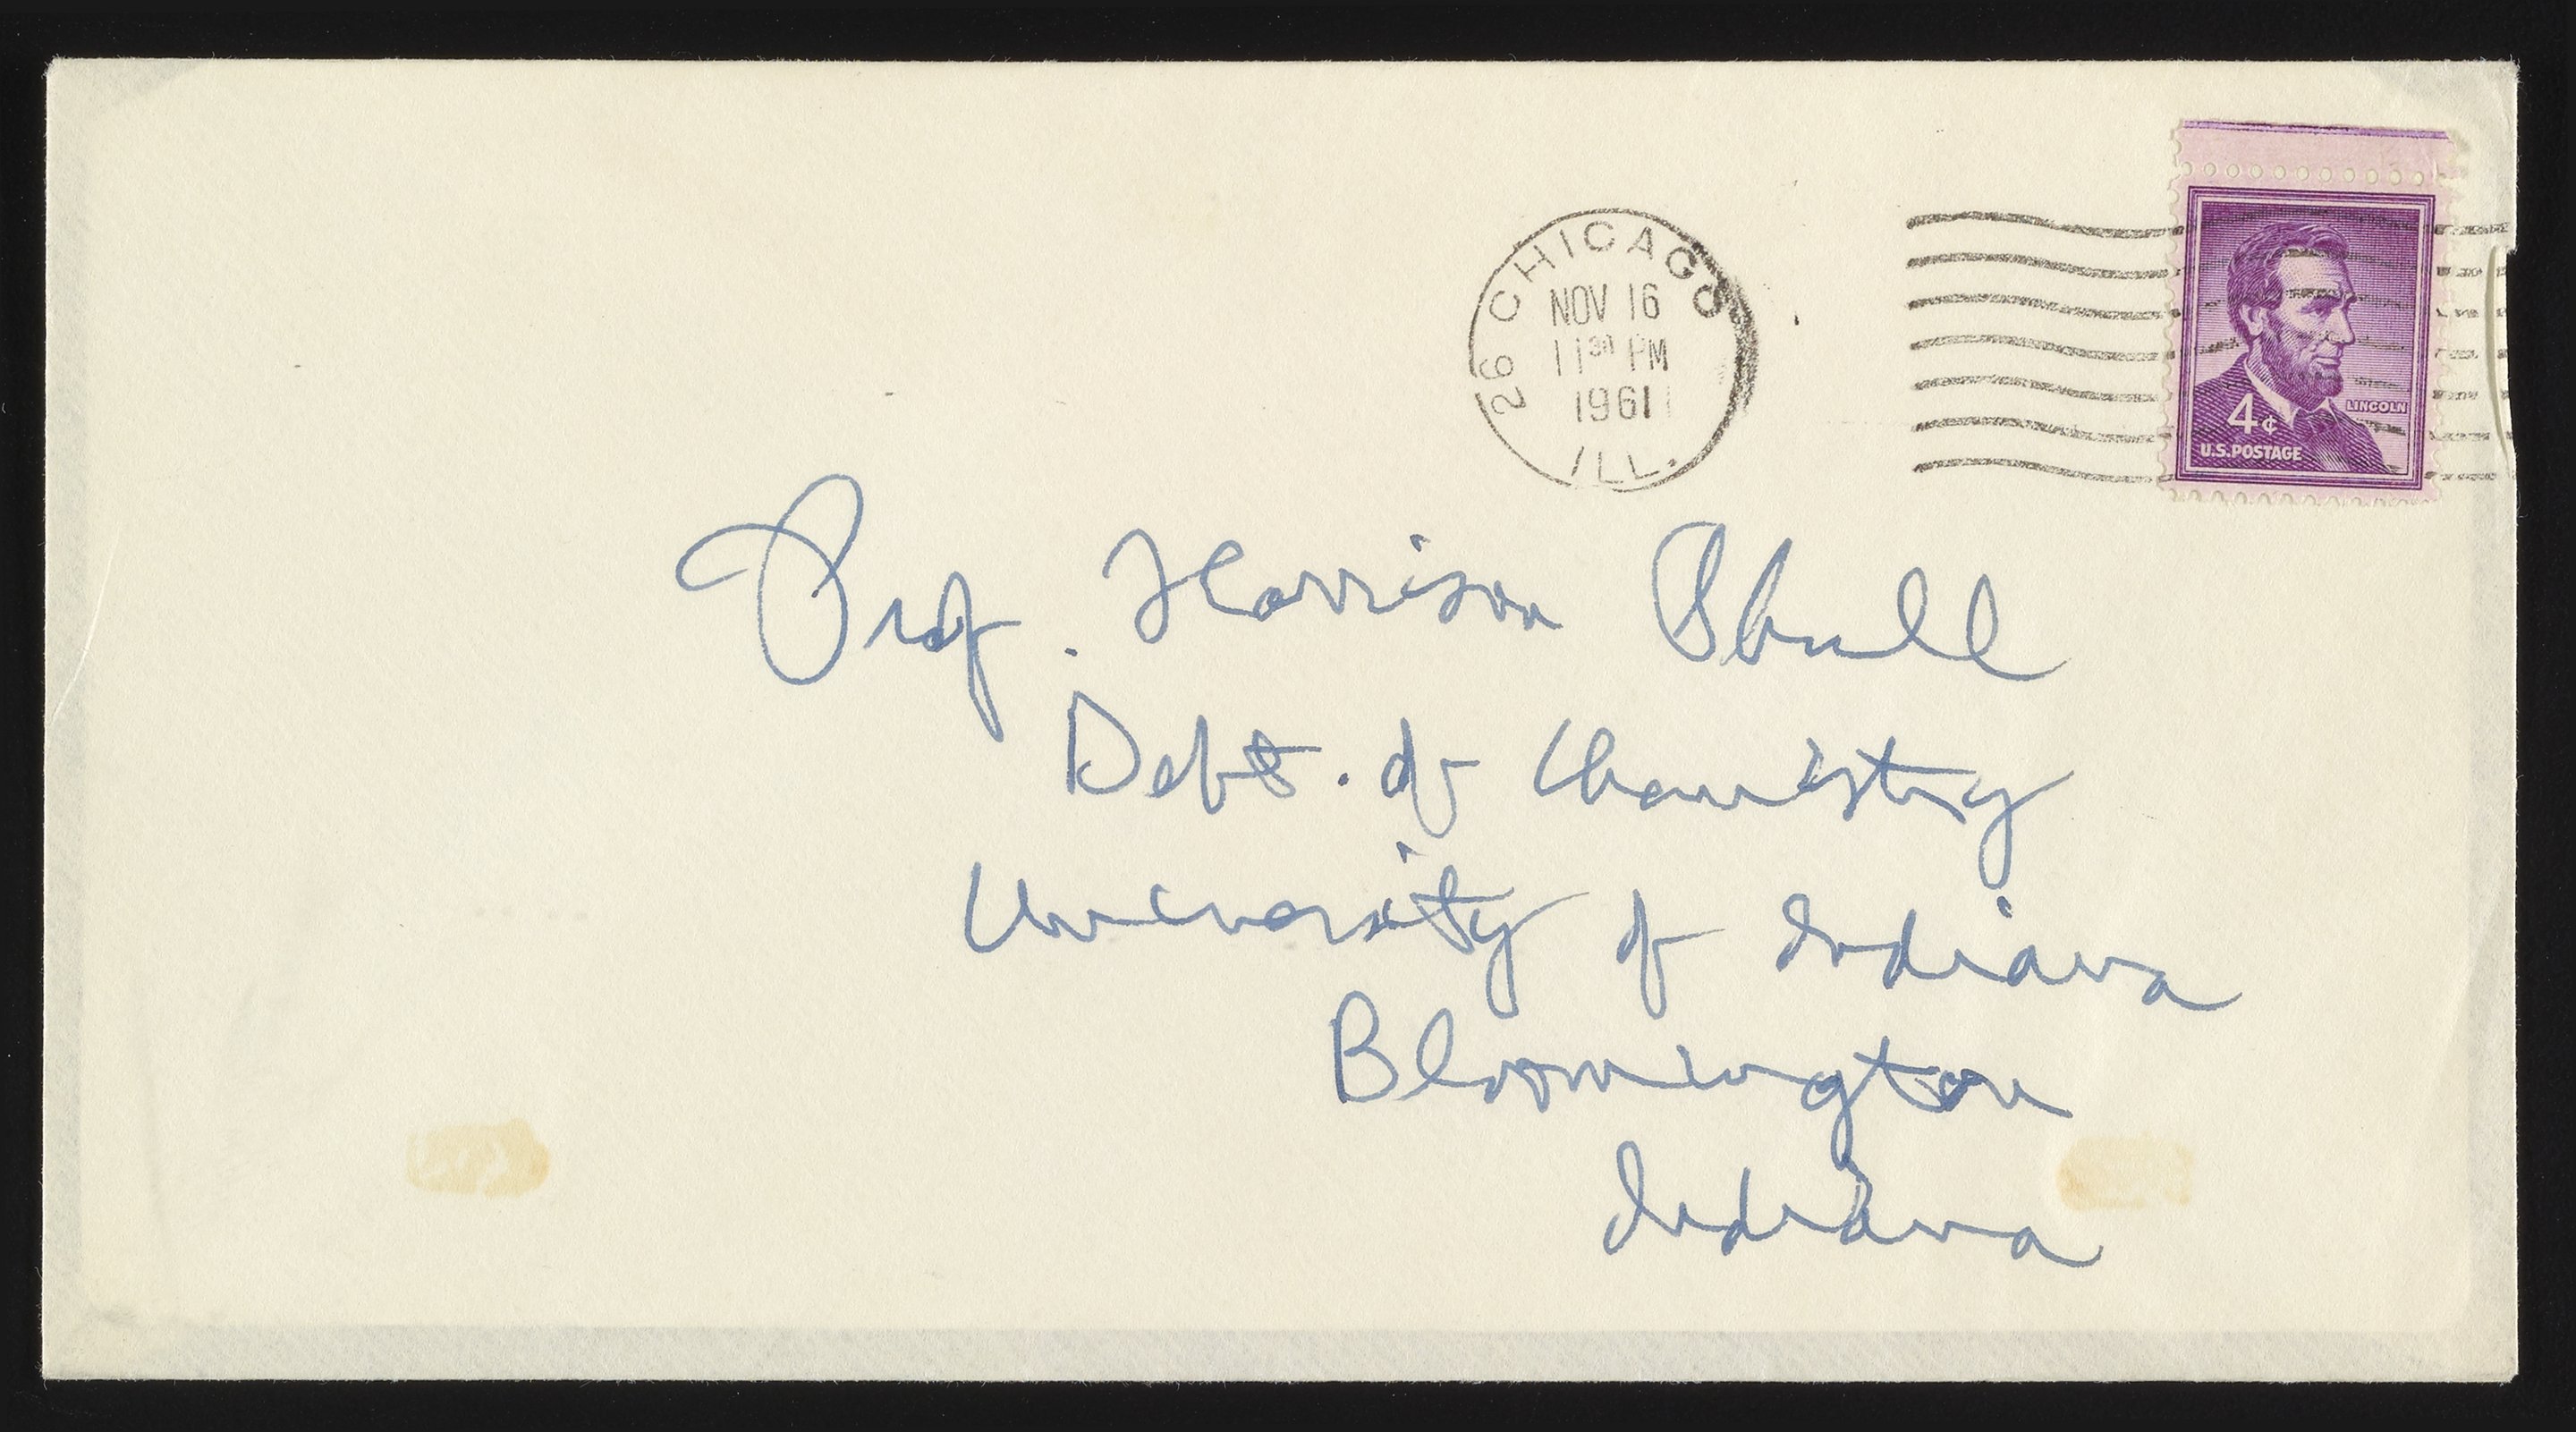 26 CHICAGO
NOV 16
11 30 PM
1961
ILL.
LINCOLN
4¢
U.S. POSTAGE
Prof. Harrison Shull
Dept. of Chemistry
University of Indiana
Bloomington
Indiana